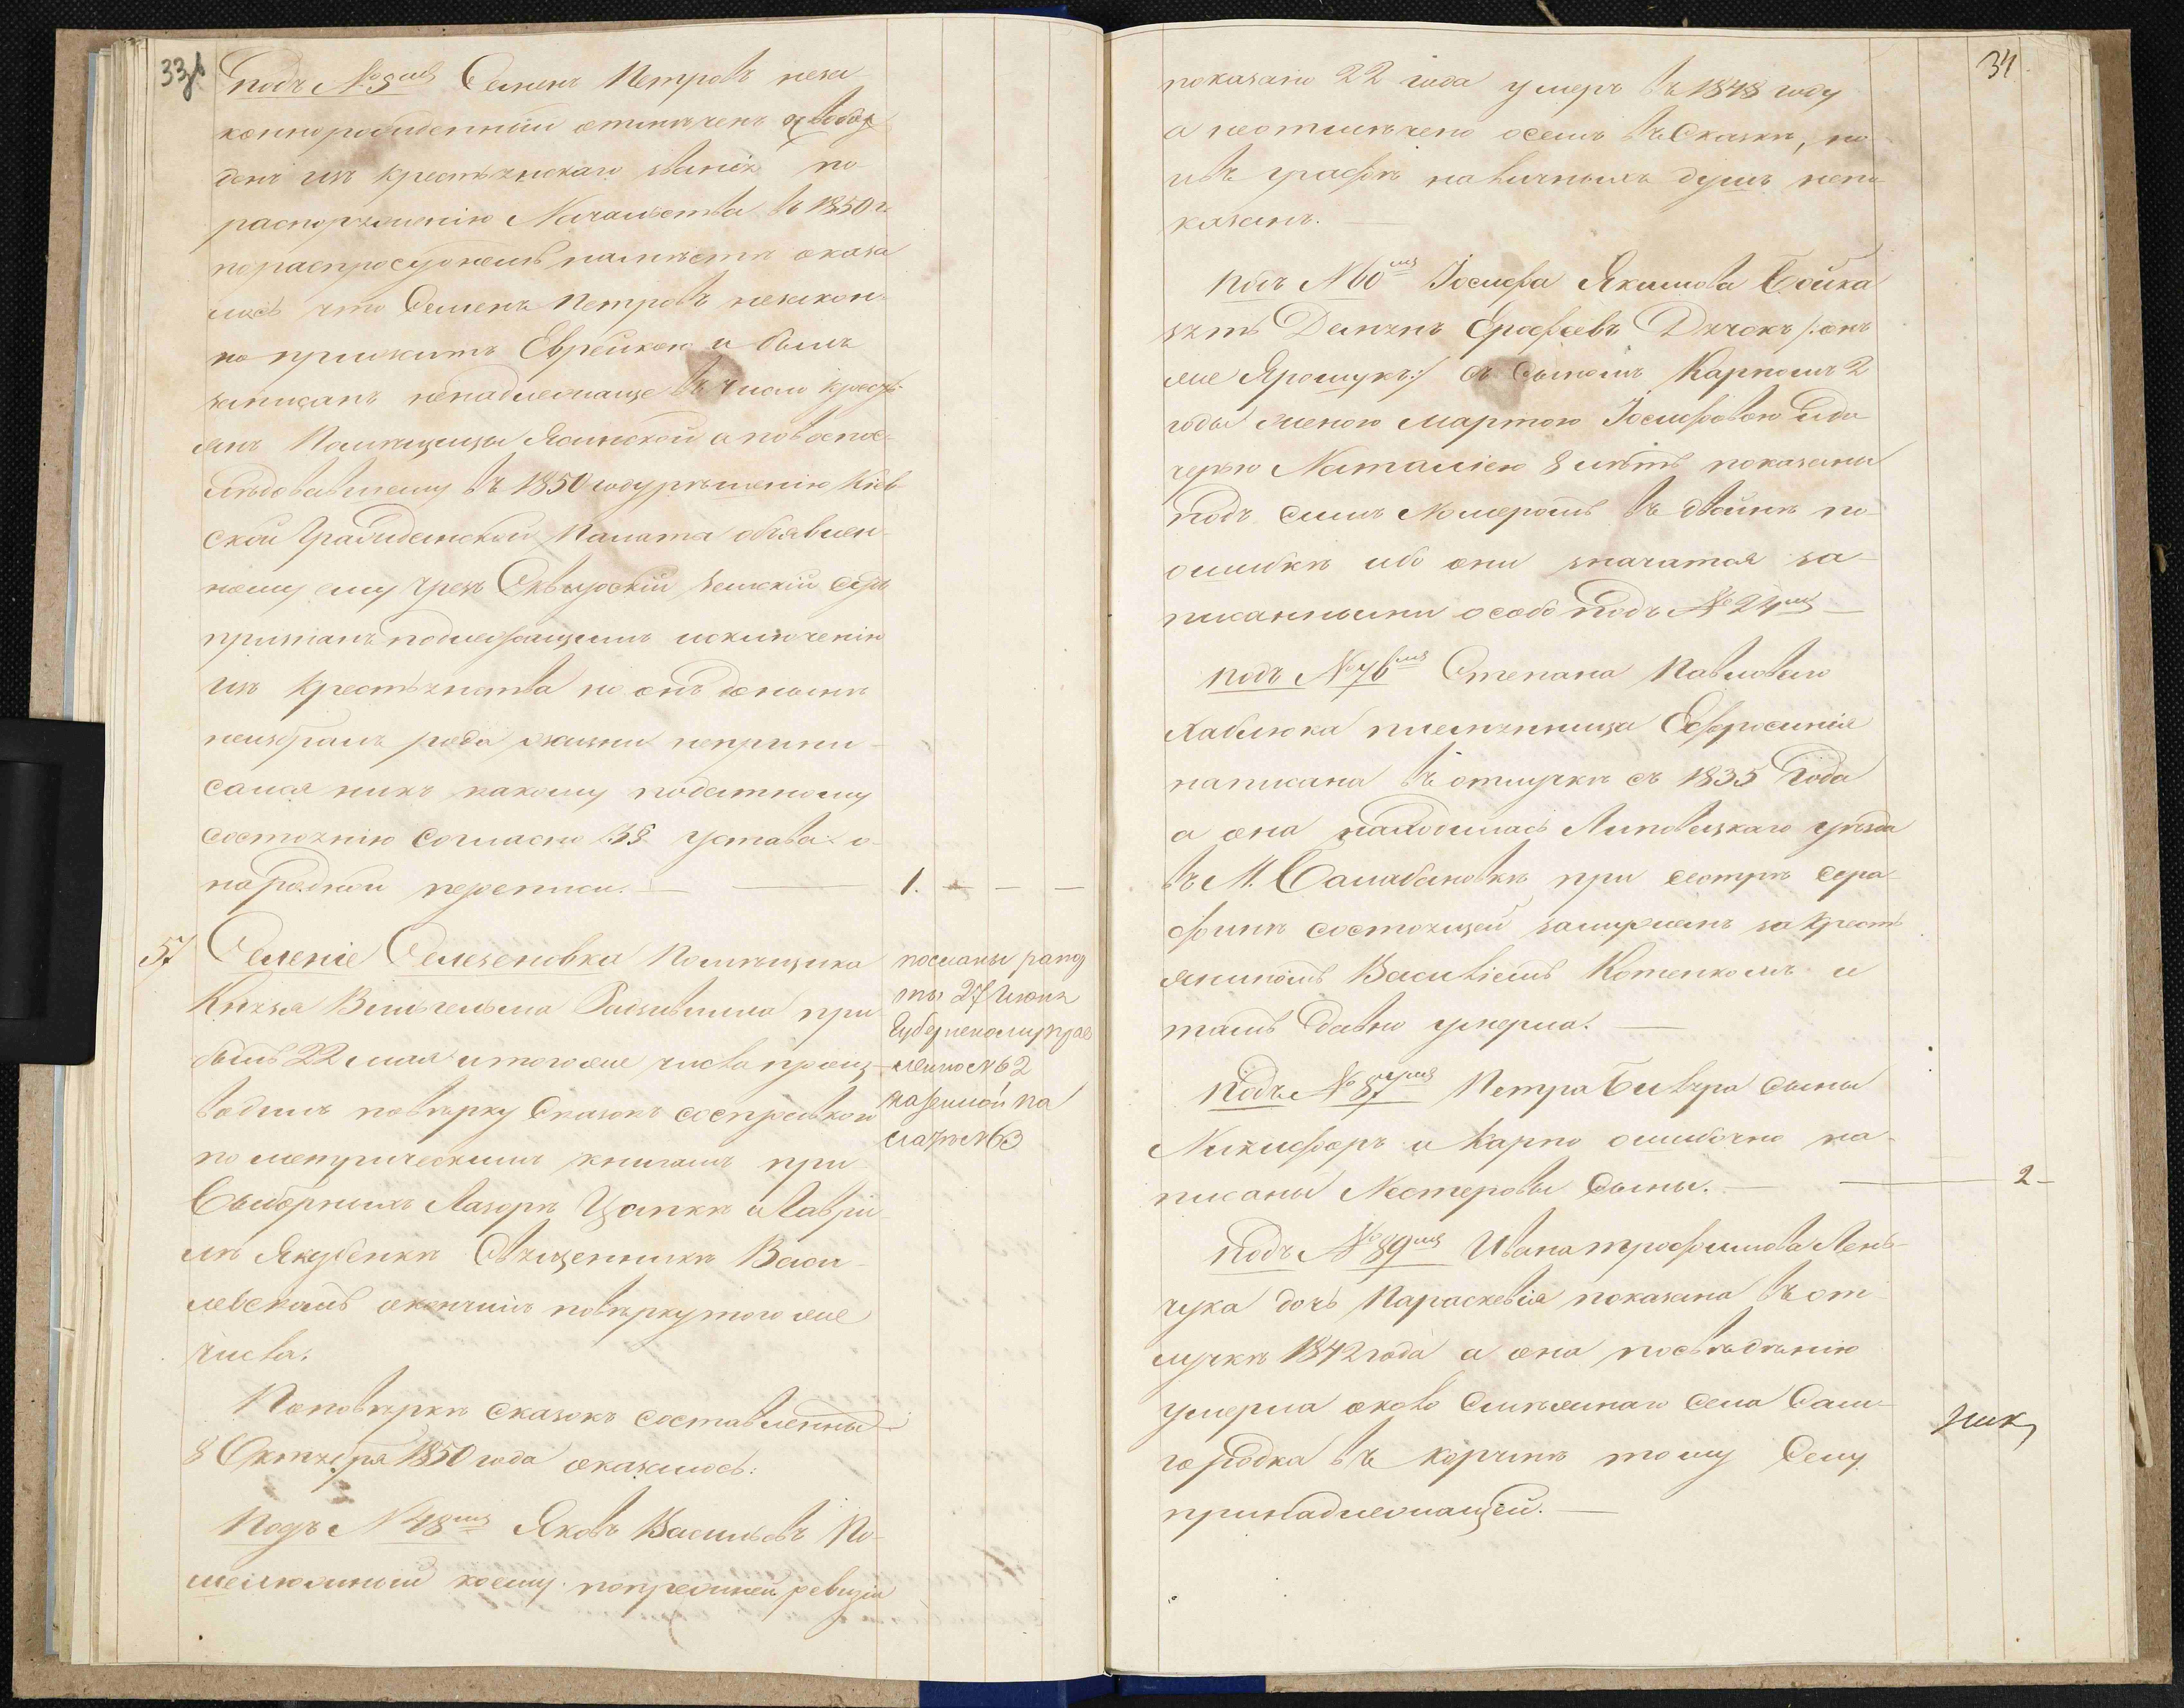 33б
Подъ №. 5мъ Семенъ Петровъ неза
коннорожденный отмѣченъ освобож
денъ изъ крестьянскаго званія по
распоряженію Начальства въ 1850 г.
пораспросу онемъ намѣстѣ оказа
лось что Семенъ Петровъ незакон-
но прижитъ Еврейкою и былъ
записанъ ненадлежаще въ число кресть-
янъ Помѣщицы Ясинской а повоспос-
лѣдовавшему въ 1850 году рѣшенію Кіев
ской Гражданской Палаты объявлен-
ному ему чрезъ Сквирскій Земскій Судъ
признанъ подлежащимъ исключенію
изъ крестьянства но онъ донынѣ
неизбралъ рода жизни неприпи-
сался никъ какому податному
состоянію согласно 38 Устава о
народной переписи. — — 1. — — —
57 Селеніе Селезеновка Помѣщика
Князя Вильгельма Радзивилла при
былъ 22 мая итого же числа произ-
водилъ повѣрку Сказокъ соспровкою
по метрическимъ книгамъ при
Сыборныхъ Лазорѣ Цапкѣ и Гаври
лѣ Якубенкѣ Священникѣ Васи-
левскомъ окончилъ повѣрку того же
числа.
посланы рапор
ты 27 Июня
Губернскому прав
ленію №62
казенной па
латѣ №63
Поповѣркѣ сказокъ составленныхъ
8 Октября 1850 года оказалось:
Подъ № 48мъ Яковъ Васильовъ По-
шелюжный коему попрежней ревизіи
34.
показано 22 года умеръ въ 1848 году
а неотмѣчено осемъ въ Сказкѣ, но
ивъ графѣ наличныхъ душъ непо-
казанъ. —
Подъ №60мъ Іосифа Якимова Бойка
зять Демянъ Ерофеевъ Дячокъ /: онъ
же Ярощукъ :/ съ сыномъ Карпомъ 2
годы женою Мартою Іосифовою идо
черью Наталіею 8 лѣтъ показаны
подъ симъ Номеромъ въ двойнѣ по
ошибкѣ ибо они значатся за-
писанными особо подъ №24мъ —
Подъ №76мъ Степана Павлового
Хаблюка племянница Ефросинія
написана въ отлучкѣ съ 1835 года
а она находилась Липовецкаго уѣзда
въ М. Балабановкѣ при сестрѣ Сера
финѣ состоящей замужемъ за крест
яниномъ Василіемъ Котенкомъ и
тамъ давно умерла. —
Подъ №87мъ Петра Бивера сыны
Никифоръ и Карпо ошибочно на-
писаны Нестеровы сыны. — — 2 —
Подъ №89мъ Ивана Трофимова Лень-
чука дочь Параскевія показана въ от
лучкѣ 1842 года а она посвѣдѣнію
умерла около Смѣжнаго села Сам-
городка въ корчмѣ тому Селу
принадлежащей. —